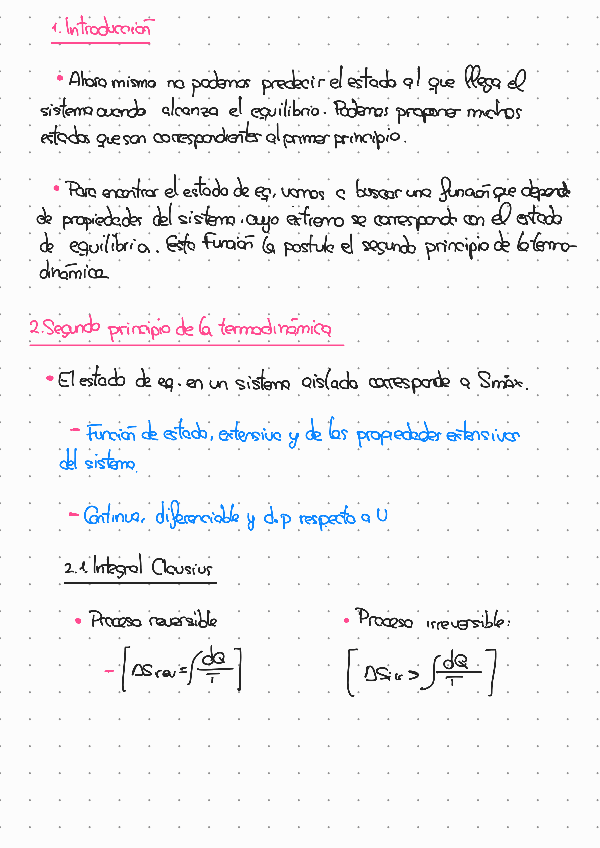 1. Introducción
• Ahora mismo no podemos predecir el estado al que llega el
sistema cuando alcanza el equilibrio. Podemos proponer muchos
estados que son correspondientes al primer principio.
• Para encontrar el estado de eq, vamos a buscar una función que depende
de propiedades del sistema, cuyo extremo se corresponde con el estado
de equilibrio. Esta función la postula el segundo principio de la termo-
dinámica
2. Segundo principio de la termodinámica
• El estado de eq. en un sistema aislado corresponde a Smáx.
- Función de estado, extensiva y de las propiedades extensivas
del sistema.
- Continua, diferenciable y d.p respecto a U
2.1 Integral Clausius
• Proceso reversible
- [ΔSrev = ∫ dQ/T]
• Proceso irreversible:
[ΔSirr > ∫ dQ/T]